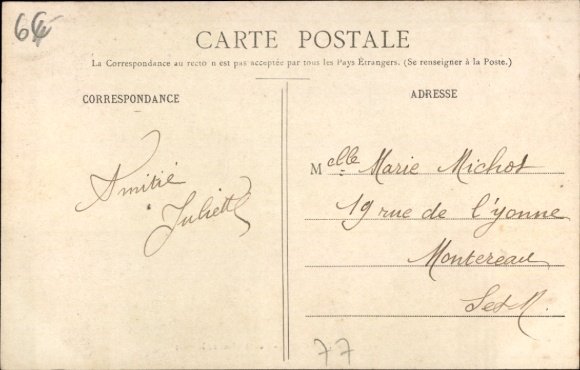 CARTE POSTALE
La Correspondance au recto n est pas acceptée par tous les Pays Étrangers. (Se renseigner à la Poste.)
CORRESPONDANCE
Amitié
Juliette
ADRESSE
Melle Marie Michot
19 rue de l'yonne
Montereau
S et M.
77